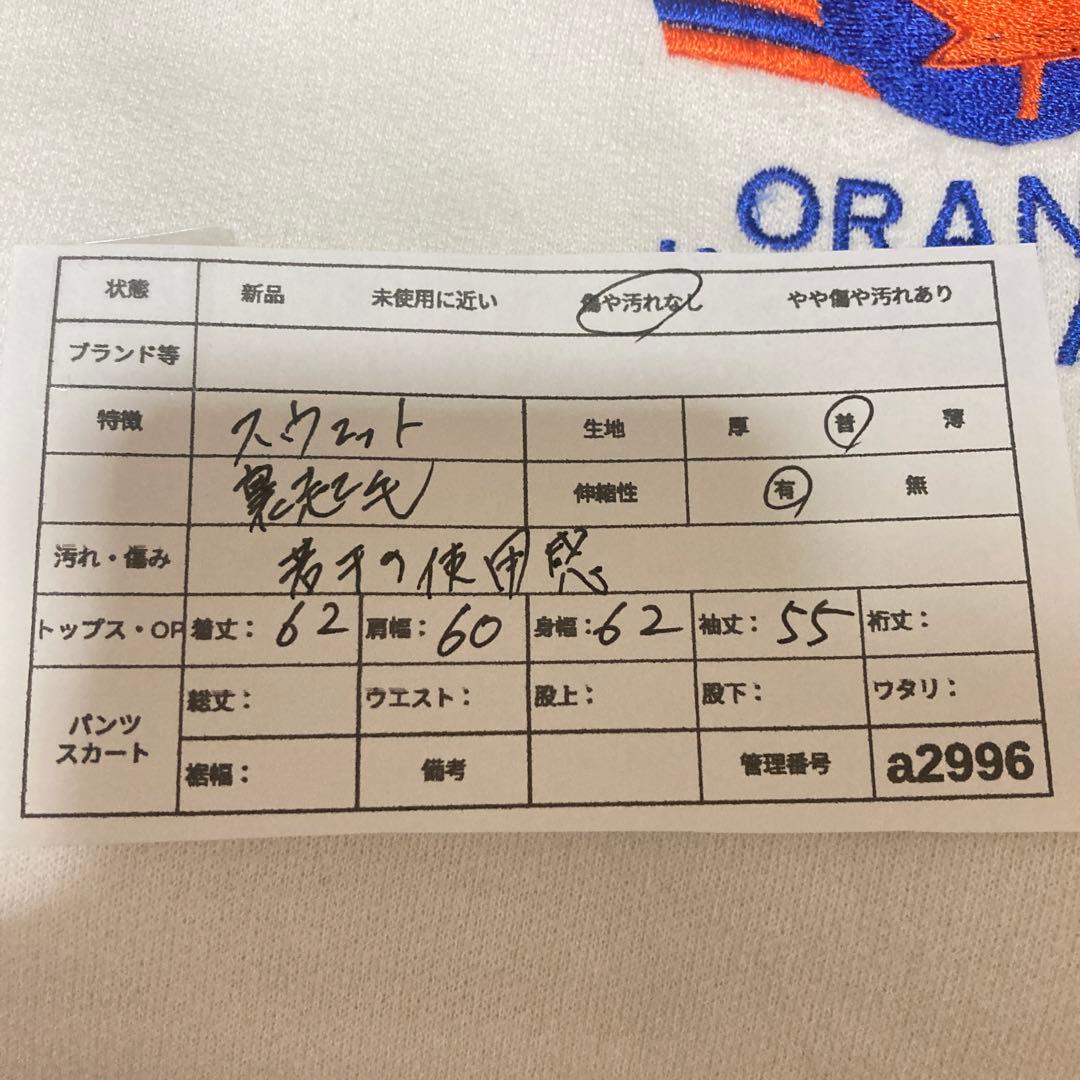 ORAN
状態 新品 未使用に近い 傷や汚れなし やや傷や汚れあり
ブランド等
特徴 スウェット 生地 厚 普 薄
裏起毛 伸縮性 有 無
汚れ・傷み 若干の使用感
トップス・OP 着丈： 62 肩幅： 60 身幅： 62 袖丈： 55 裄丈：
パンツ スカート
総丈： ウエスト： 股上： 股下： ワタリ：
裾幅： 備考 管理番号 a2996